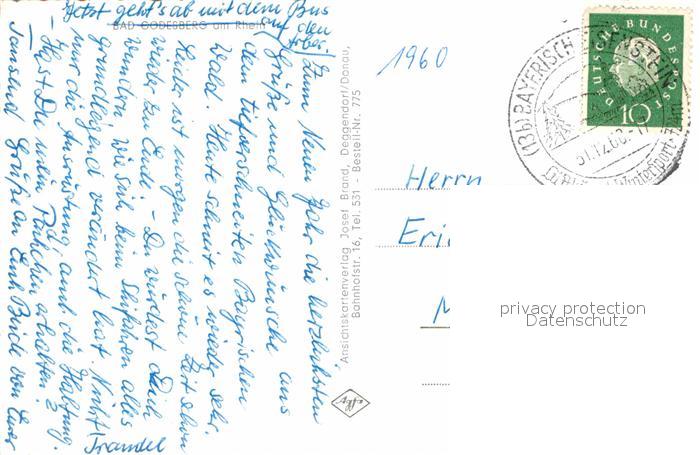 Jetzt geht's ab mit dem Bus
auf den
Arber!
BAD GODESBERG am Rhein
Zum Neuen Jahr die herzlichsten
Grüße und Glückwünsche aus
dem tiefverschneiten Bayrischen
Wald. Heute schneit es wieder sehr.
Leider ist morgen die schöne Zeit schon
wieder zu Ende! - Du würdest Dich
wundern wie sich beim Skifahren alles
grundlegend verändert hat. Nicht
nur die Ausrüstung, auch die Haltung.
- Hast Du mein Päckchen erhalten?
Tausend Grüße an Euch Beide von Eurer
Traudel
Ansichtskartenverlag Josef Brand, Deggendorf/Donau,
Bahnhofstr. 16, Tel. 531 - Bestell-Nr. 775
Agfa
1960
(13b) BAYERISCH EISENSTEIN
31.12.60
DEUTSCHE BUNDESPOST
10
Herrn
Eri
M
privacy protection
Datenschutz